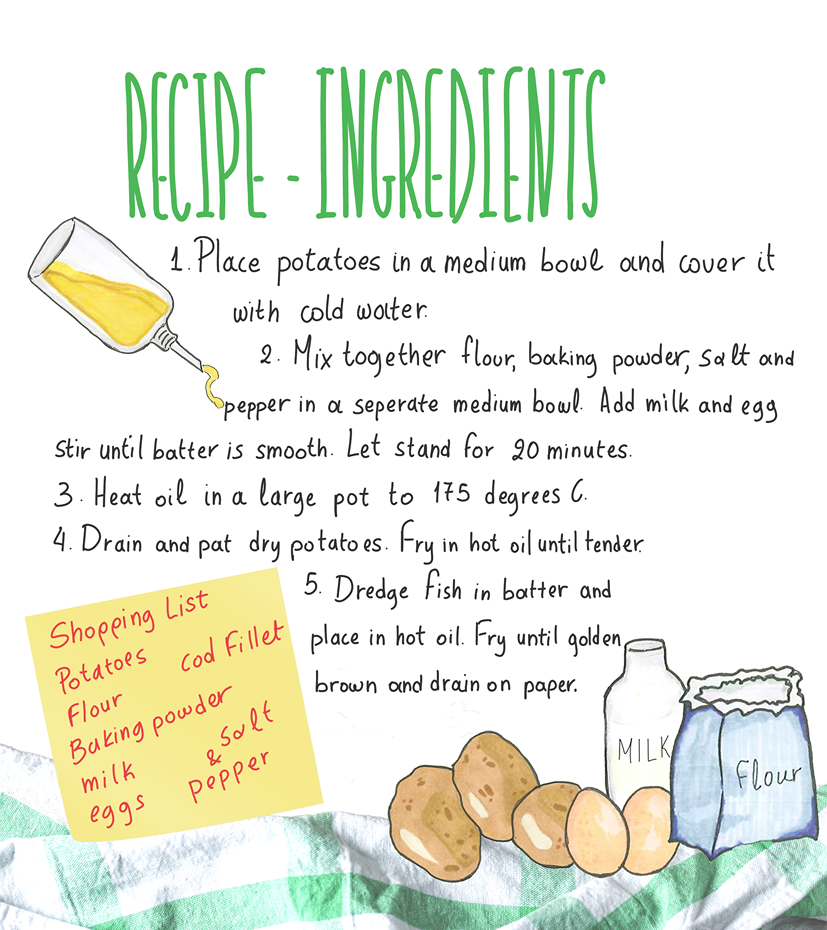 RECIPE - INGREDIENTS
1. Place potatoes in a medium bowl and cover it
with cold water.
2. Mix together flour, baking powder, salt and
pepper in a seperate medium bowl. Add milk and egg
stir until batter is smooth. Let stand for 20 minutes.
3. Heat oil in a large pot to 175 degrees C.
4. Drain and pat dry potatoes. Fry in hot oil until tender.
5. Dredge fish in batter and
place in hot oil. Fry until golden
brown and drain on paper.
Shopping List
Potatoes
Cod Fillet
Flour
Baking powder
milk
eggs
Salt
&
pepper
MILK
Flour